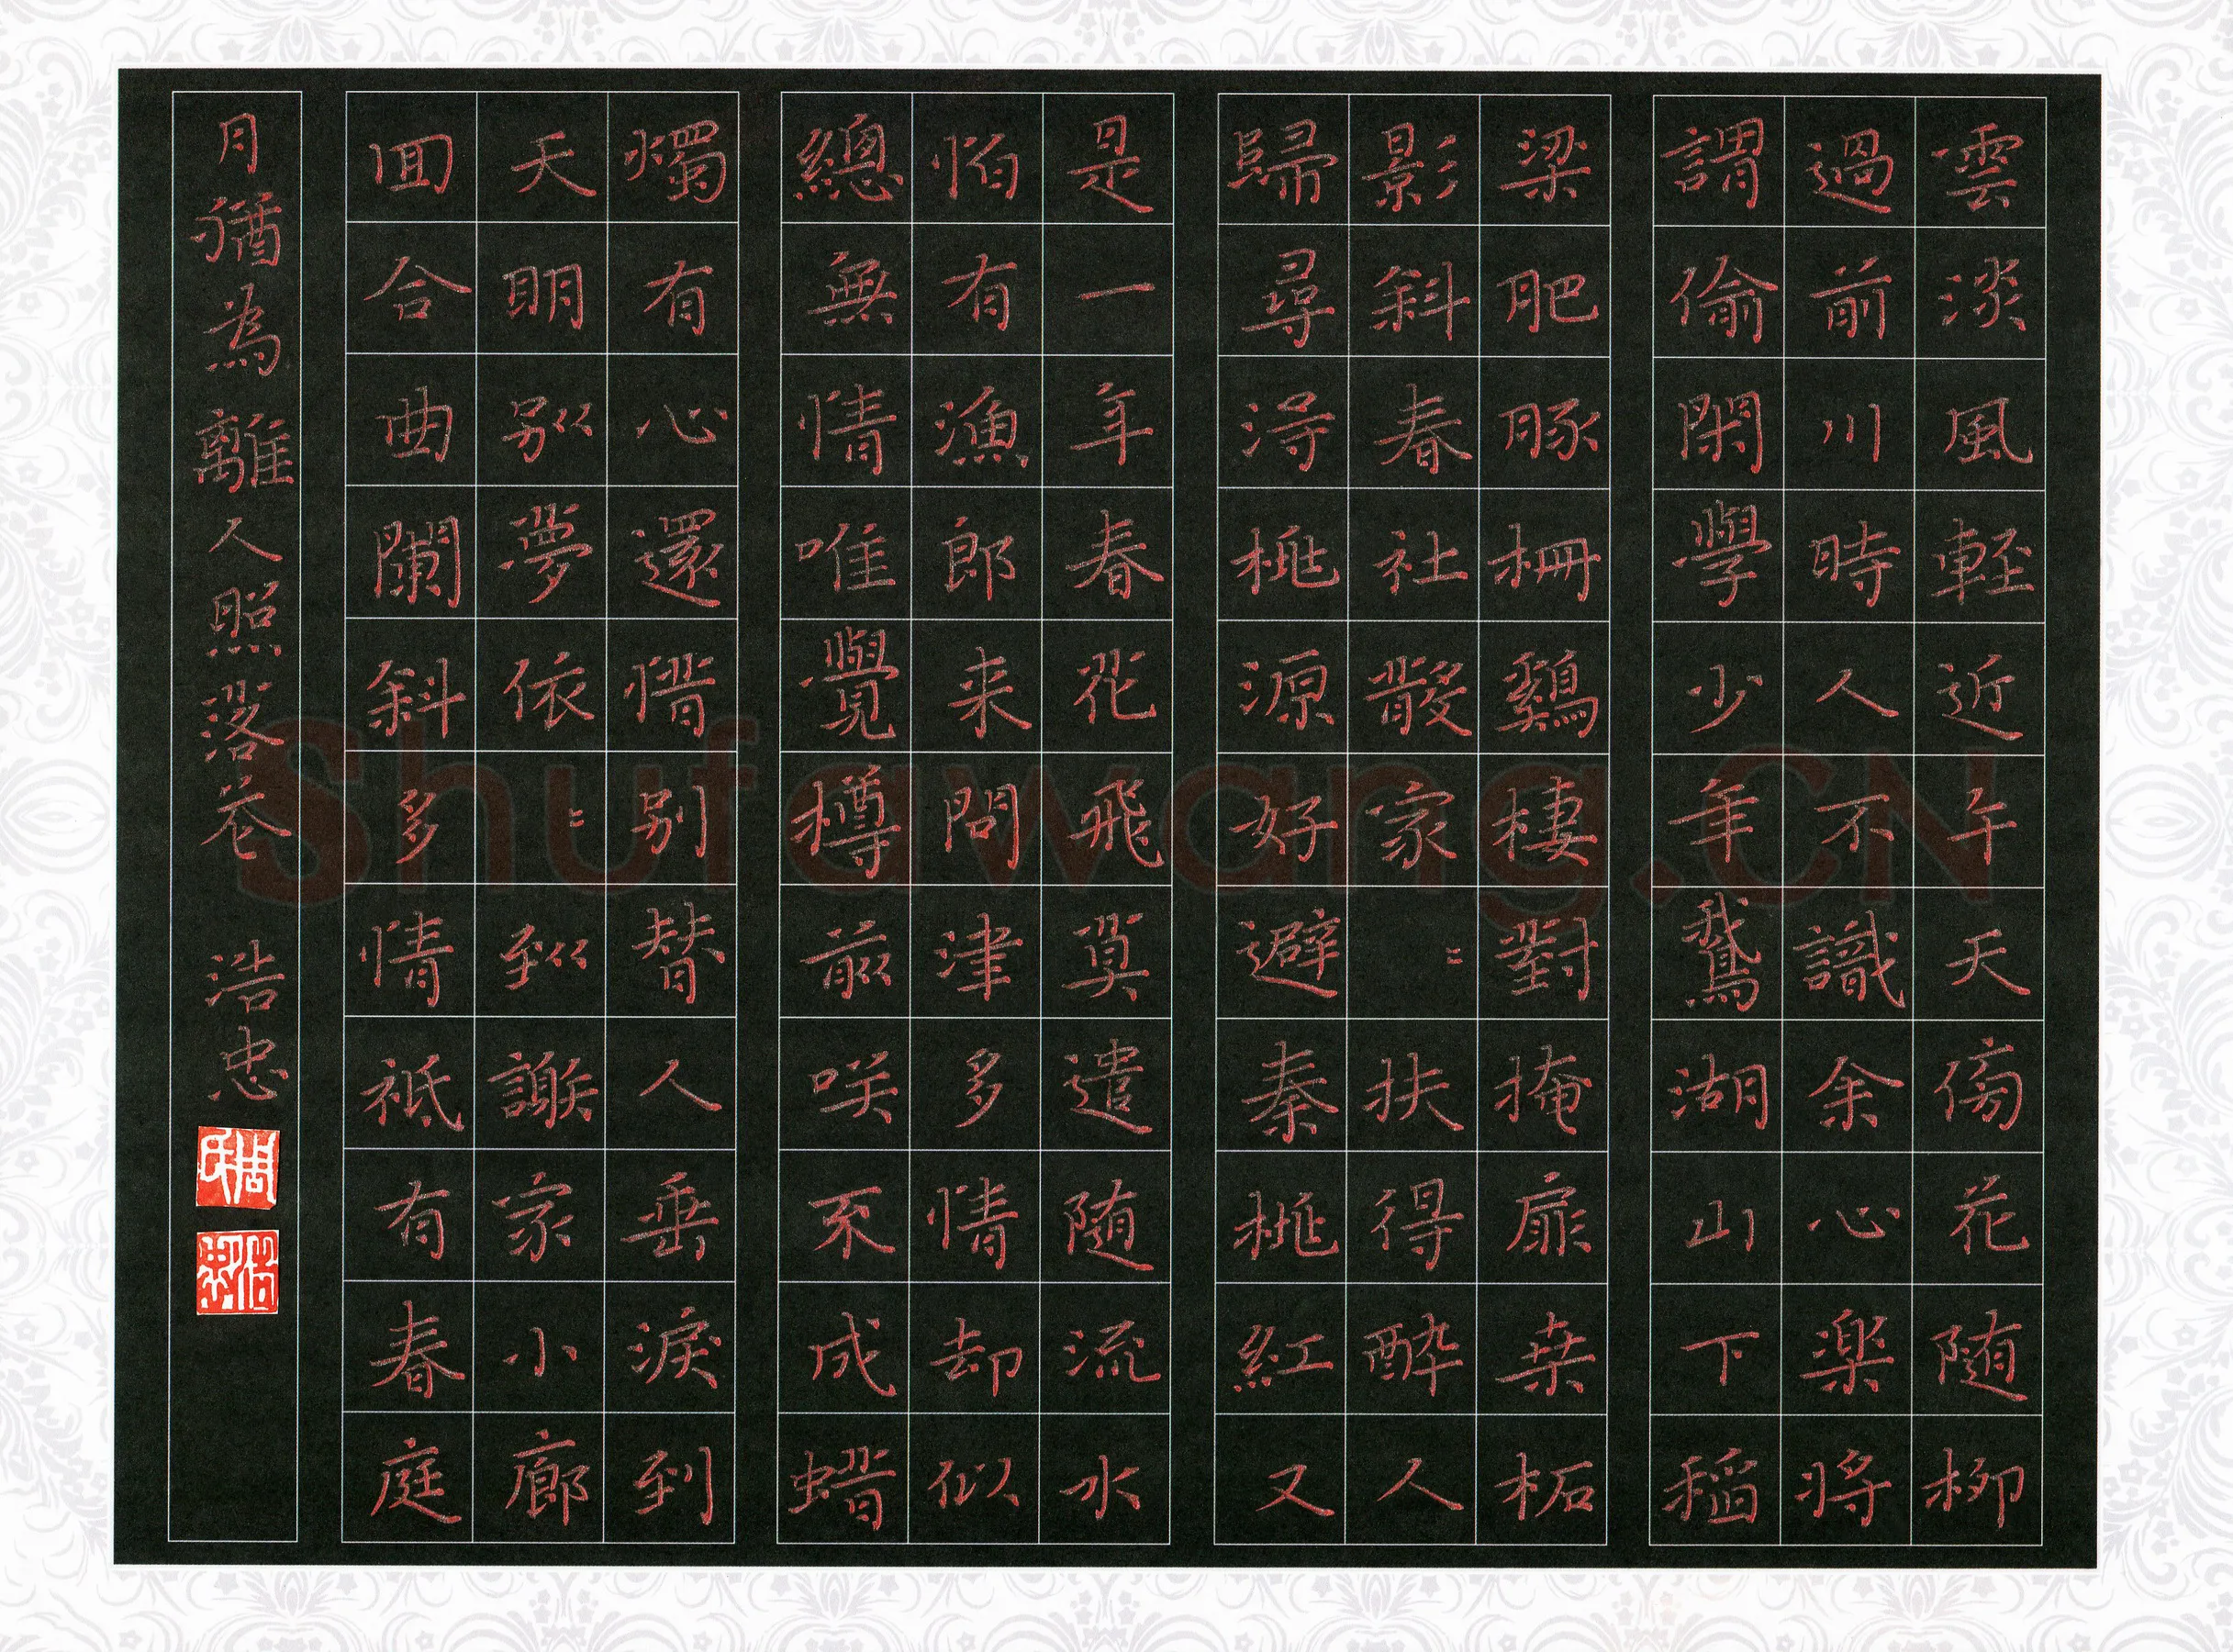 雲淡風輕近午天傍花随柳
過前川時人不識余心楽將
謂偷閑學少年鵞湖山下稻
梁肥豚柵鷄棲對掩扉桒柘
影斜春社散家々扶得醉人
歸尋得桃源好避秦桃紅又
是一年春花飛莫遣随流水
怕有漁郎来問津多情却似
總無情唯覺樽前咲不成蠟
燭有心還惜别替人垂淚到
天明别夢依々到謝家小廊
囬合曲闌斜多情祇有春庭
月猶為離人照落花 浩忠
周氏
浩忠
Shufawang.CN